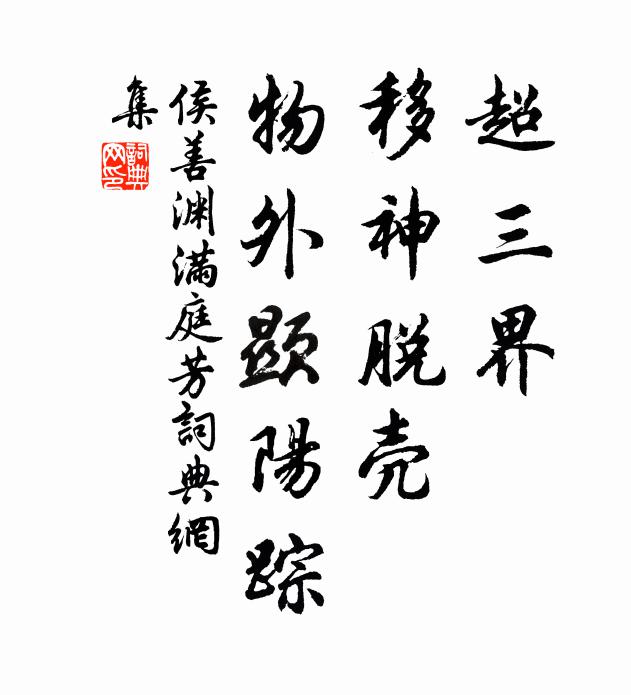 超三界
移神脱壳
物外顕陽踪
侯善渊滿庭芳詞典網
集
詞典網印